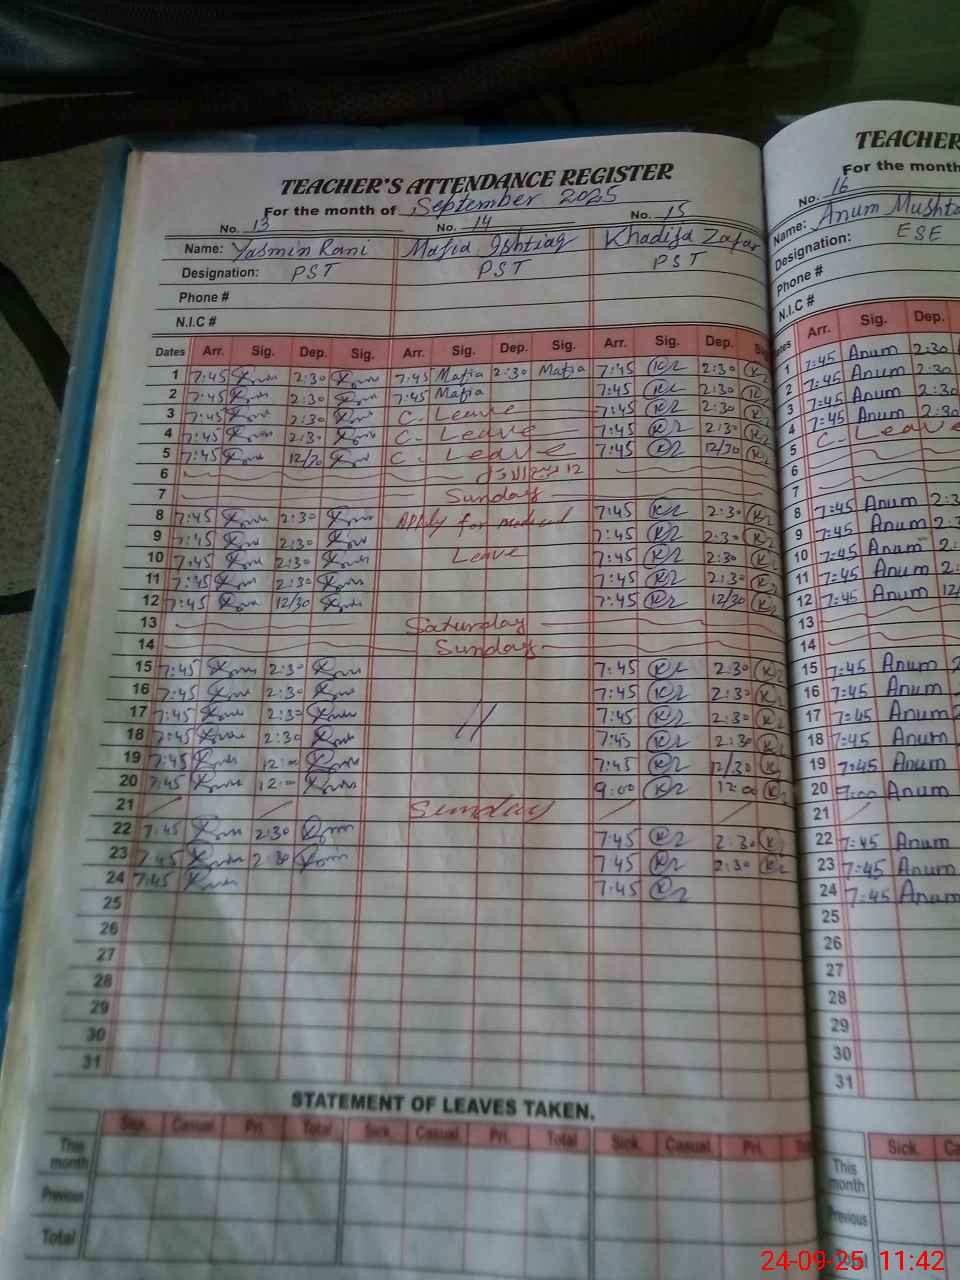 TEACHER'S ATTENDANCE REGISTER
For the month of September 2025
No. 13 No. 14 No. 15
Name: Yasmin Rani Mafia Ishtiaq Khadija Zafar
Designation: PST PST PST
Phone #
N.I.C #
Dates Arr. Sig. Dep. Sig. Arr. Sig. Dep. Sig. Arr. Sig. Dep.
1 7:45 2:30 7:45 Mafia 2:30 Mafia 7:45 2:30
2 7:45 2:30 7:45 Mafia 7:45 2:30
3 7:45 2:30 C. Leave 7:45 2:30
4 7:45 2:30 C. Leave 7:45 2:30
5 7:45 12/30 C. Leave 7:45 12/30
6 12
7 Sunday
8 7:45 2:30 Apply for medical 7:45 2:30
9 7:45 2:30 7:45 2:30
10 7:45 2:30 Leave 7:45 2:30
11 7:45 2:30 7:45 2:30
12 7:45 12/30 7:45 12/30
13 Saturday
14 Sunday
15 7:45 2:30 7:45 2:30
16 7:45 2:30 7:45 2:30
17 7:45 2:30 7:45 2:30
18 7:45 2:30 7:45 2:30
19 7:45 12:00 7:45 12/30
20 7:45 12:00 9:00 12:00
21 Sunday
22 7:45 2:30 7:45 2:30
23 7:45 2:30 7:45 2:30
24 7:45 7:45
25
26
27
28
29
30
31
STATEMENT OF LEAVES TAKEN.
Sick. Casual. Pri. Total Sick. Casual. Pri. Total Sick. Casual. Pri.
This month
Previous
Total
TEACHER
For the month
No. 16
Name: Anum Mushta
Designation: ESE
Phone #
N.I.C #
Arr. Sig. Dep.
1 7:45 Anum 2:30
2 7:45 Anum 2:30
3 7:45 Anum 2:30
4 7:45 Anum 2:30
5 C. Leave
6
7
8 7:45 Anum 2:3
9 7:45 Anum 2:3
10 7:45 Anum 2:
11 7:45 Anum 2:
12 7:45 Anum 12/
13
14
15 7:45 Anum
16 7:45 Anum
17 7:45 Anum
18 7:45 Anum
19 7:45 Anum
20 Anum
21
22 7:45 Anum
23 7:45 Anum
24 7:45 Anum
25
26
27
28
29
30
31
Sick. Ca
This month
Previous
Total
24-09-25 11:42